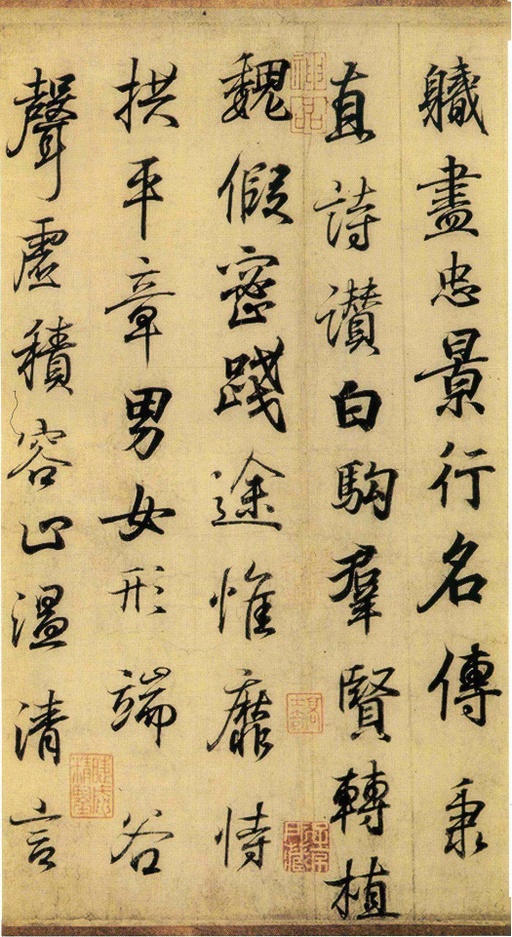 軄盡忠景行名傳秉
直詩讃白駒羣賢轉植
魏假密踐途惟靡恃
拱平章男女形端谷
聲虛積容止温清言
神品